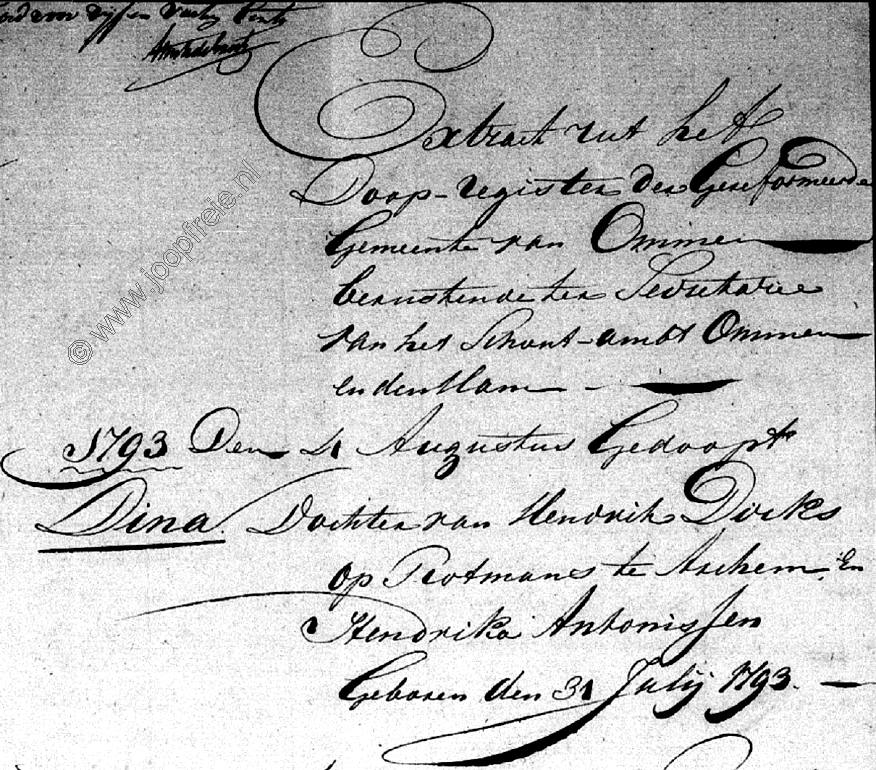 Extract uit het
Doop-register der Gereformeerde
Gemeente van Ommen
berustende ter Secretarie
van het Schout-ambt Ommen
en den Ham
1793 Den 4 Augustus Gedoopt
Dina Dochter van Hendrik Dirks
op Rotmans te Archem, En
Hendrika Antonissen
Geboren den 31 Julij 1793.
© www.joopfreie.nl